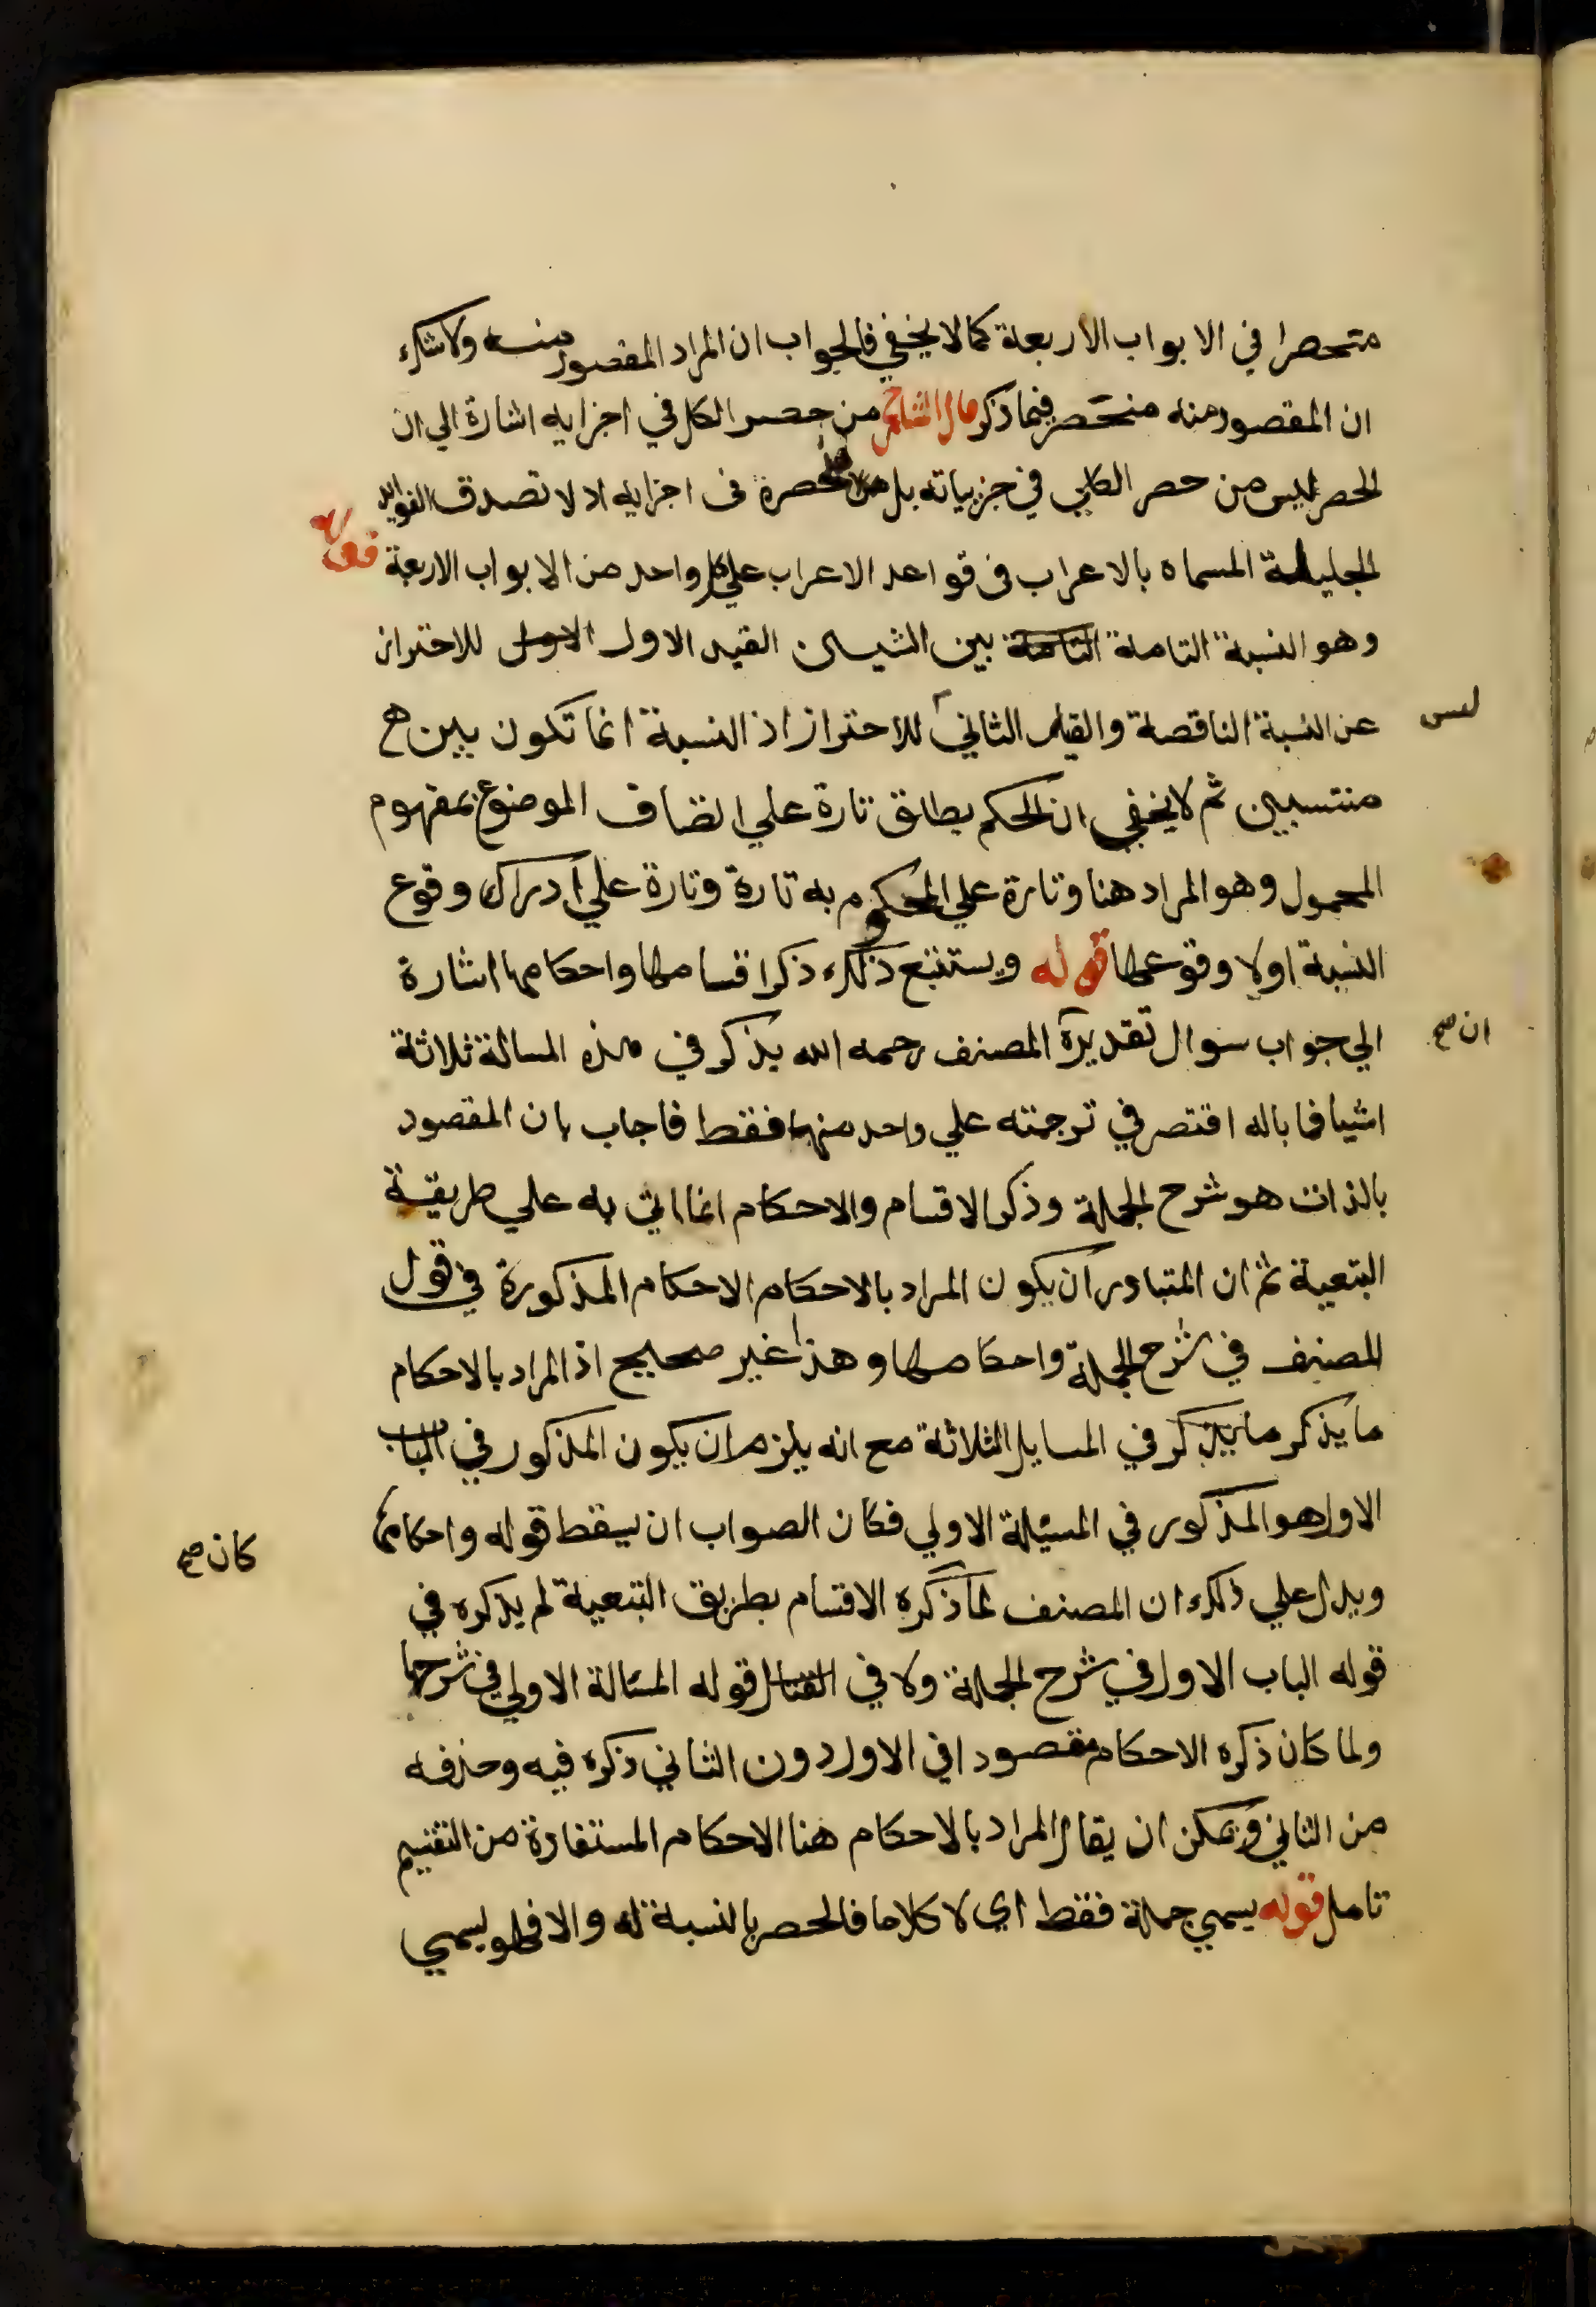 منحصرا في الابواب الاربعة كما لا يخفي فالجواب ان المراد المقصود منه ولا شك
ان المقصود منه منحصر فيما ذكر قال الشارح من حصر الكل في اجزايه اشارة الي ان
الحصر ليس من حصر الكلي في جزيياته بل منحصرة في اجزايه اذ لا تصدق الفوايد
الجليلة المسماه بالاعراب في قواعد الاعراب علي كل واحد من الابواب الاربعة قوله
وهو النسبة التامة التامة بين الشيين القيد الاول الاول للاحتراز
عن النسبة الناقصة والقيد الثاني للاحتراز اذ النسبة انما تكون بين
ليس
منتسبين ثم لا يخفي ان الحكم يطلق تارة علي اتصاف الموضوع بمفهوم
المحمول وهو المراد هنا وتارة علي المحكوم به تارة وتارة علي ادراك وقوع
النسبة اولا وقوعها قوله ويستتبع ذلك ذكر اقسامها واحكامها اشارة
الي جواب سوال تقديره المصنف رحمه الله يذكر في هذه المسالة ثلاثة
ان صح
اشيا فما باله اقتصر في ترجمته علي واحد منها فقط فاجاب بان المقصود
بالذات هو شرح الجملة وذكر الاقسام والاحكام انما اتي به علي طريقة
التبعية ثم ان المتبادر ان يكون المراد بالاحكام الاحكام المذكورة في قول
المصنف في شرح الجملة واحكامها وهذا غير صحيح اذ المراد بالاحكام
ما يذكر ما يذكر في المسايل الثلاثة مع انه يلزم ان يكون المذكور في الباب
الاول هو المذكور في المسيلة الاولي فكان الصواب ان يسقط قوله واحكامها
ويدل علي ذلك ان المصنف لما ذكره الاقسام بطريق التبعية لم يذكره في
كان صح
قوله الباب الاول في شرح الجملة ولا في قوله المسالة الاولي في شرحها
ولما كان ذكره الاحكام مقصودا في الاول دون الثاني ذكره فيه وحذفه
من الثاني ويمكن ان يقال المراد بالاحكام هنا الاحكام المستفادة من التقسيم
تامل قوله يسمي جملة فقط اي لا كلاما فالحصر بالنسبة له والا فهو يسمي